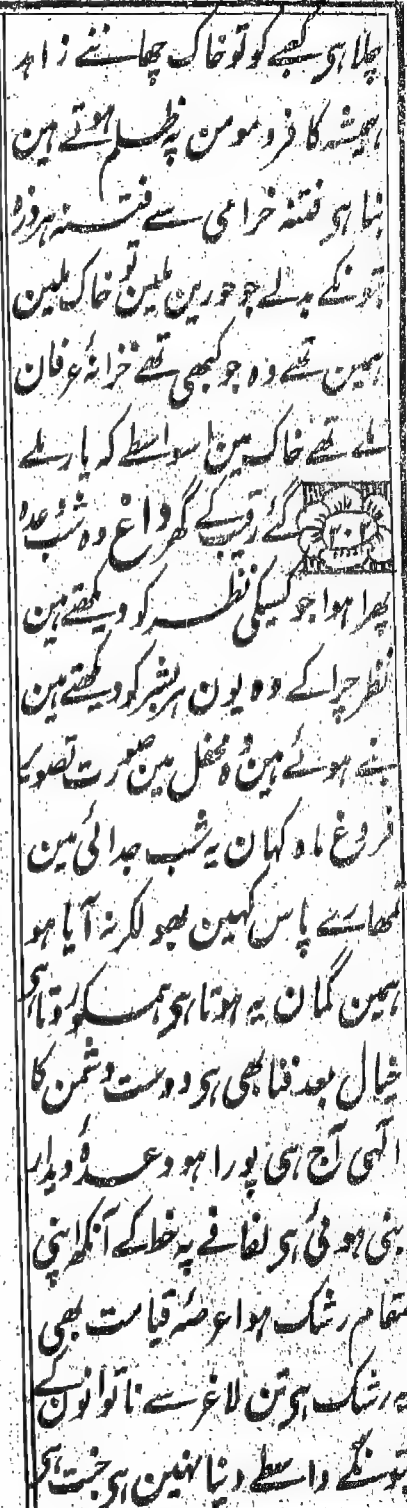 چلا ہی کعبے کو تو خاک چھاننے زاہد
ہمیشہ کافر و مومن پہ ظلم ہوتے ہین
بنا ہی فتنہ خرامی سے فتنہ ہر ذرہ
بتونکے بدلے جو حورین ملین تو خاک ملین
ہمین تھے وہ جو کبھی تھے خزانۂ عرفان
ملے تھے خاک مین اسواسطے کہ یار ملے
گئے رقیب کے گھر داغ وہ شب وعدہ
۲۰۲
پھرا ہوا جو کسیکی نظر کو دیکھتے ہین
نظر چرا کے وہ یون ہر بشر کو دیکھتے ہین
بنے ہوئے ہین وہ محفل مین صورت تصویر
فروغ ماہ کہان یہ شب جدائی مین
تمھارے پاس کہین بھولکر نہ آیا ہو
ہمین گمان یہ ہوتا ہی ہمکو روتا ہی
خیال بعد فنا بھی ہی دوست دشمن کا
الٰہی آج ہی پورا ہو وعدۂ دیدار
بنی ہوئی ہی لفافے پہ خط کے آنکھ اپنی
مقام رشک ہوا عرصۂ قیامت بھی
یہ رشک ہی تن لاغر سے ناتوانون کے
بتونکے واسطے دنیا نہین ہی جنت ہی